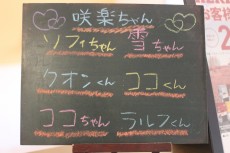 咲楽ちゃん
ソフィちゃん 雪ちゃん
クオンくん ココくん
ココちゃん ラルフくん